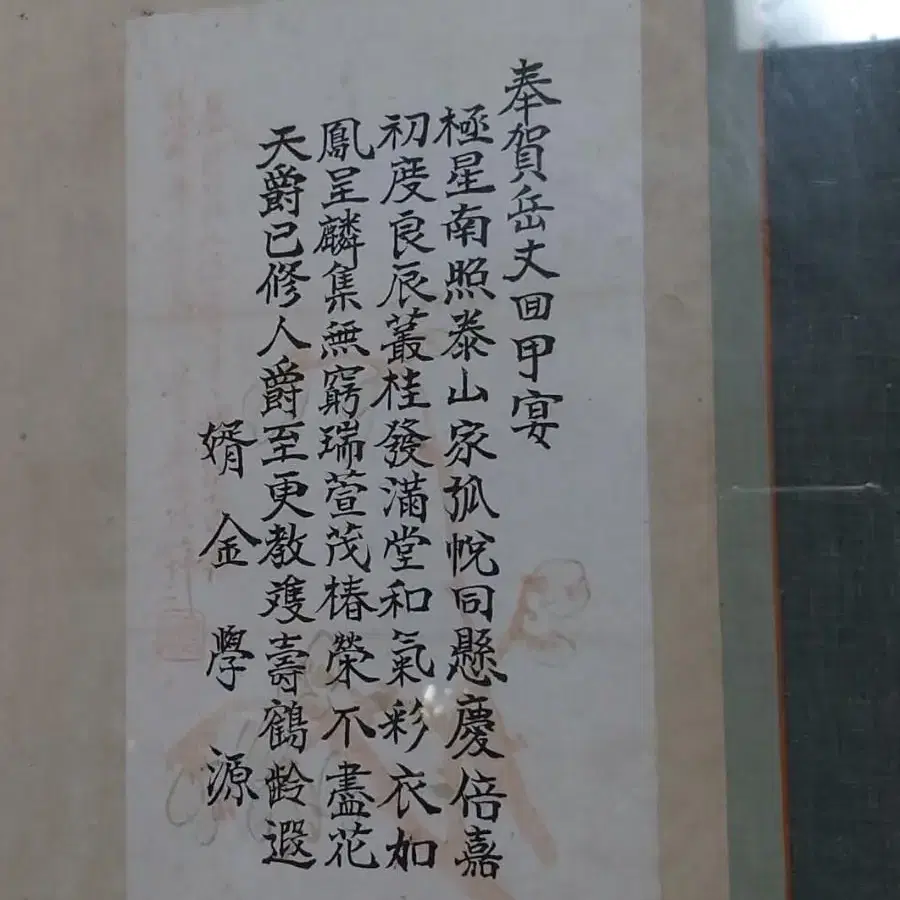 奉賀岳丈回甲宴
極星南照泰山家弧帨同懸慶倍嘉
初度良辰叢桂發滿堂和氣彩衣加
鳳呈麟集無窮瑞萱茂椿榮不盡花
天爵已修人爵至更教獲壽鶴齡遐
婿金學源